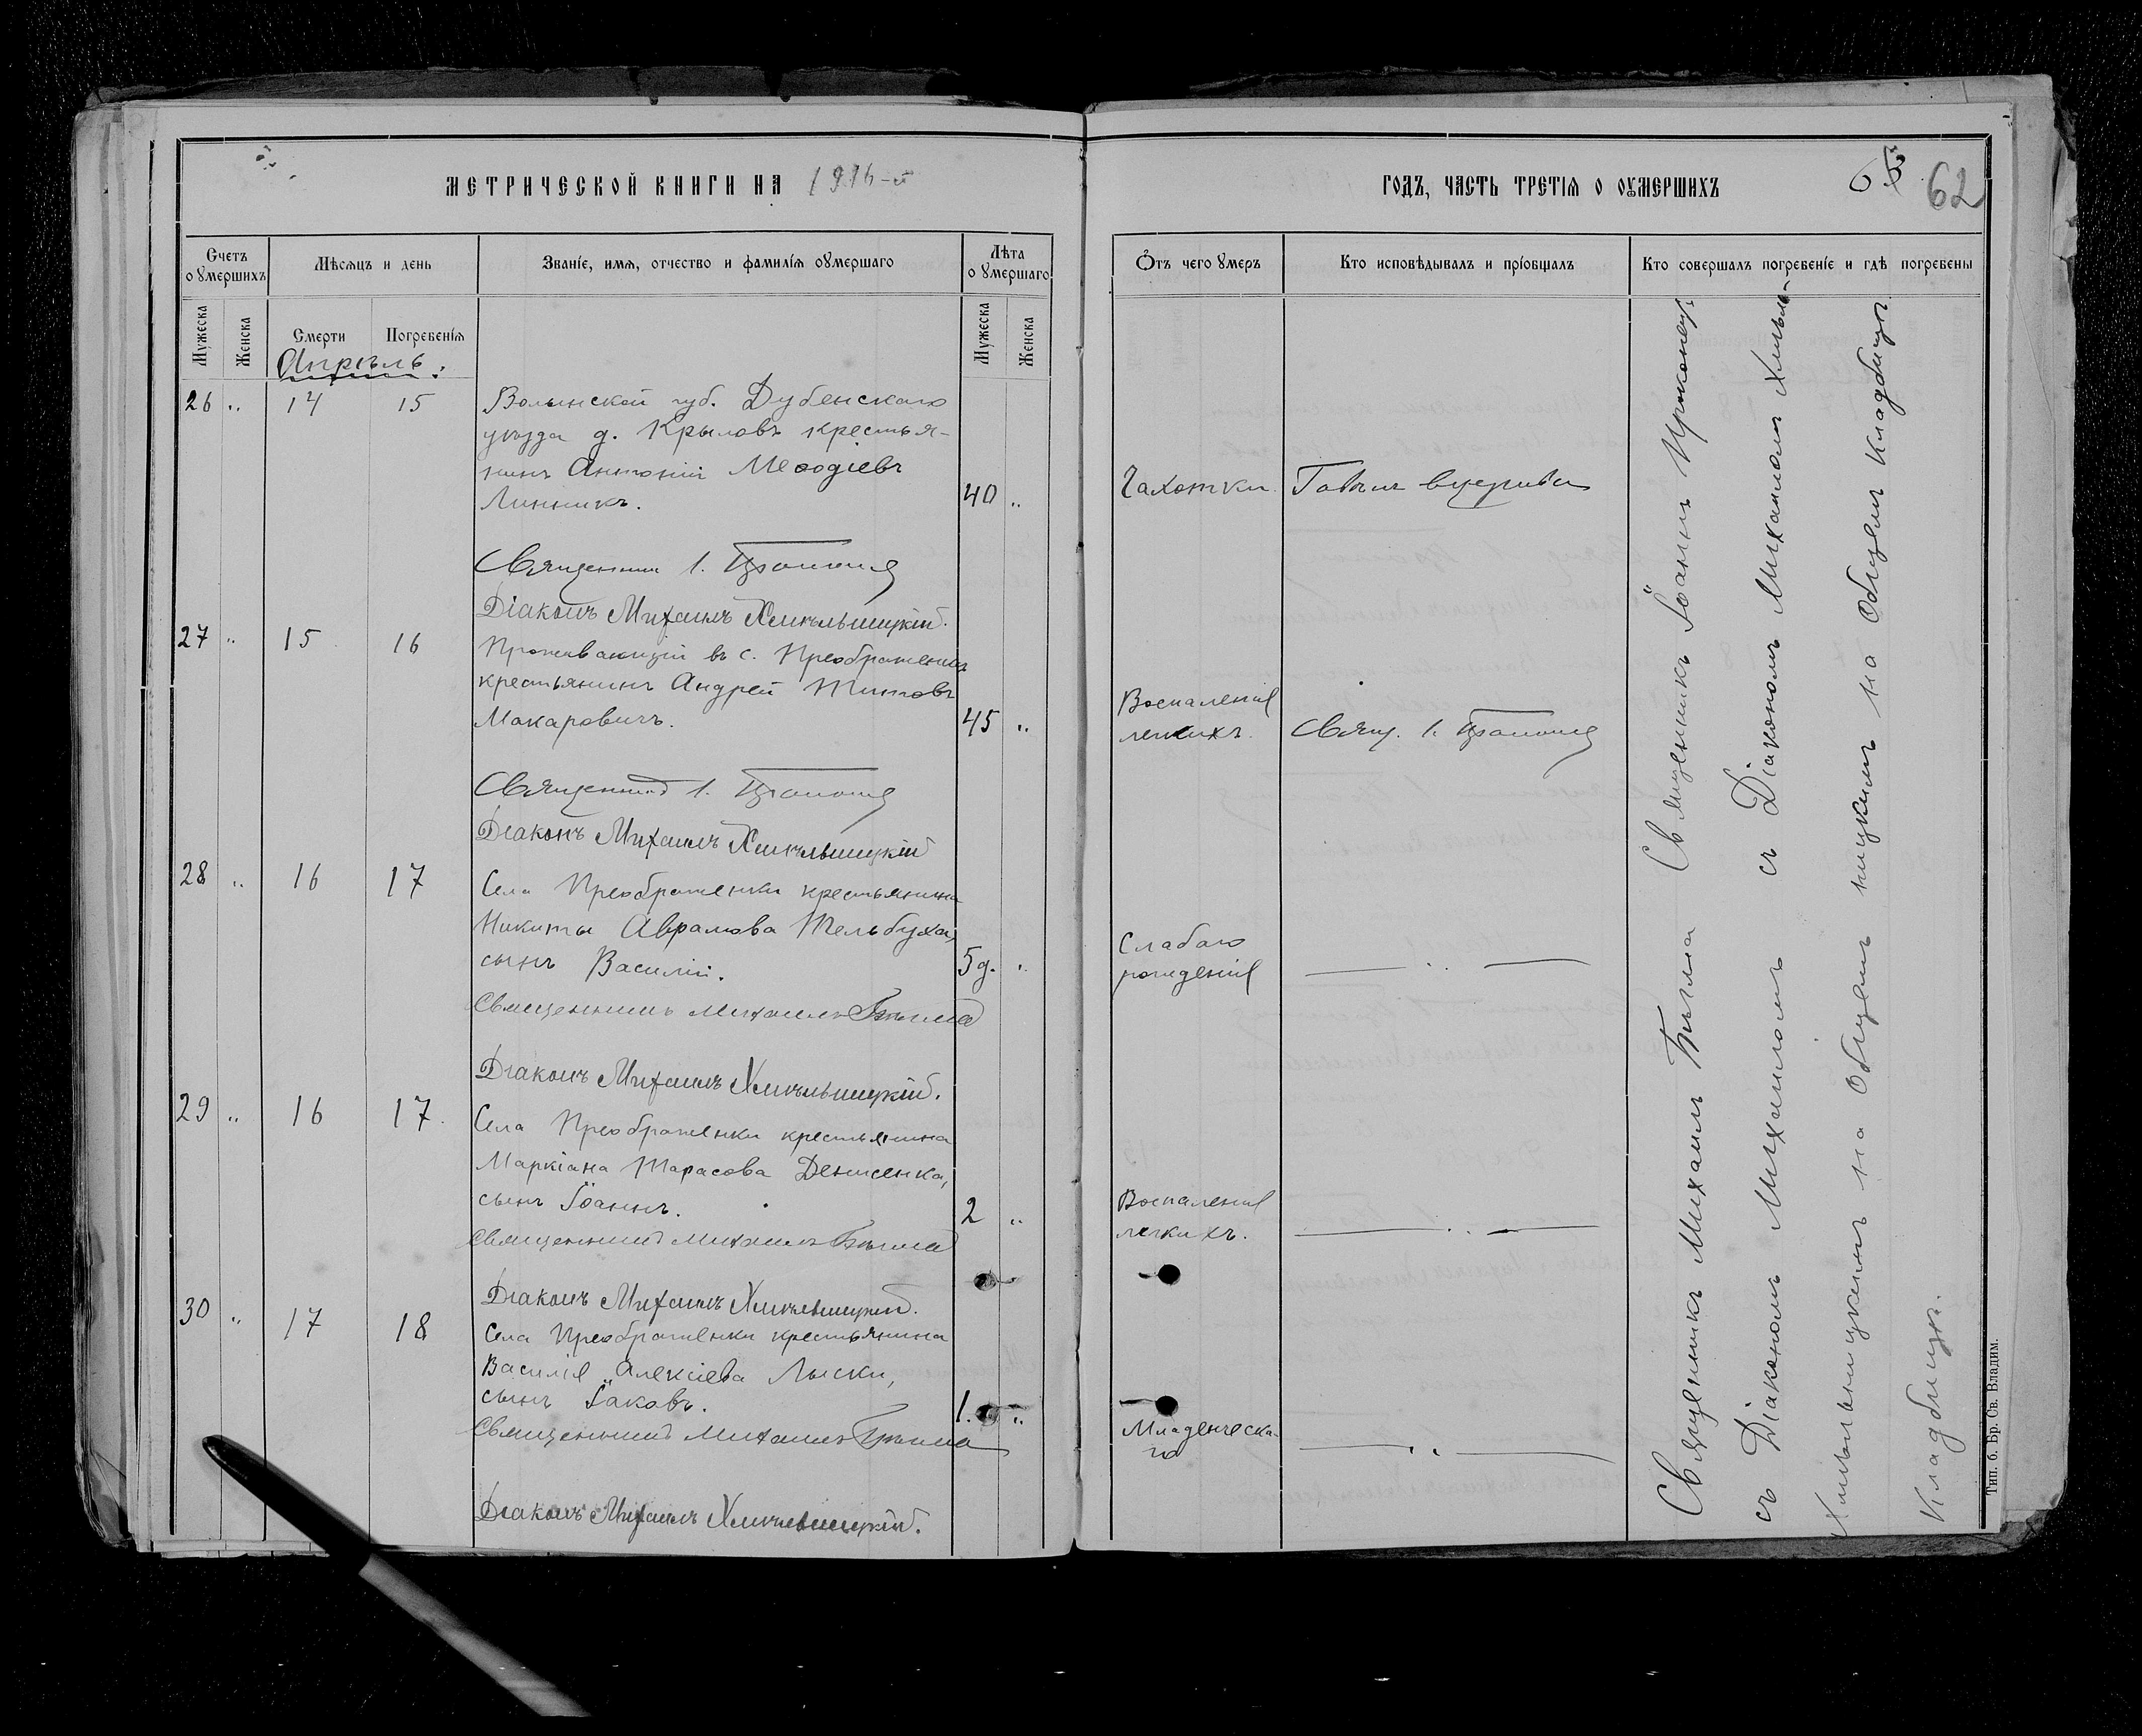 МЕТРИЧЕСКОЙ КНИГИ НА 1916-й
ГОДЪ, ЧАСТЬ ТРЕТІѦ О ОУМЕРШИХЪ
62
Счетъ оумершихъ
Мѣсѧцъ и день
Званіе, имѧ, отчество и фамиліѧ оумершаго
Лѣта оумершаго
Отъ чего умеръ
Кто исповѣдывалъ и пріобщалъ
Кто совершалъ погребеніе и гдѣ погребены
Мужеска
Женска
Смерти
Погребеніѧ
Мужеска
Женска
Апрѣль.
26 " 14 15
Волынской губ. Дубенскаго
уѣзда д. Крыловъ крестья-
нинъ Антоній Меѳодіевъ
Линникъ.
40 "
Чахотки
Священникъ І.
Діаконъ Михаилъ Хмѣльницкій.
27 " 15 16
Проживающій въ с. Преображенкѣ
крестьянинъ Андрей Титовъ
Макаровичъ.
45 "
Воспаленія
легкихъ.
Свящ. І.
Священникъ І.
Діаконъ Михаилъ Хмѣльницкій
28 " 16 17
Села Преображенки крестьянина
Никиты Аврамова Тельбуха,
сынъ Василій.
5 д. "
Слабаго
рожденія
Священникъ Михаилъ Бѣлма
Діаконъ Михаилъ Хмѣльницкій.
29 " 16 17
Села Преображенки крестьянина
Маркіана Тарасова Денисенка,
сынъ Іоаннъ.
2 "
Воспаленія
легкихъ.
Священникъ Михаилъ
Діаконъ Михаилъ Хмѣльницкій.
30 " 17 18
Села Преображенки крестьянина
Василія Алексіева Лыски,
сынъ Іаковъ.
1. "
Младенческа-
го
Священникъ Михаилъ
Діаконъ Михаилъ Хмѣльницкій.
Священникъ Іоаннъ
съ Діакономъ Михаиломъ Хмѣль-
ницкимъ на общемъ кладбищѣ
Священникъ Михаилъ
съ Діакономъ Михаиломъ
Хмѣльницкимъ на общемъ
кладбищѣ.
Тип. б. Бр. Св. Владим.